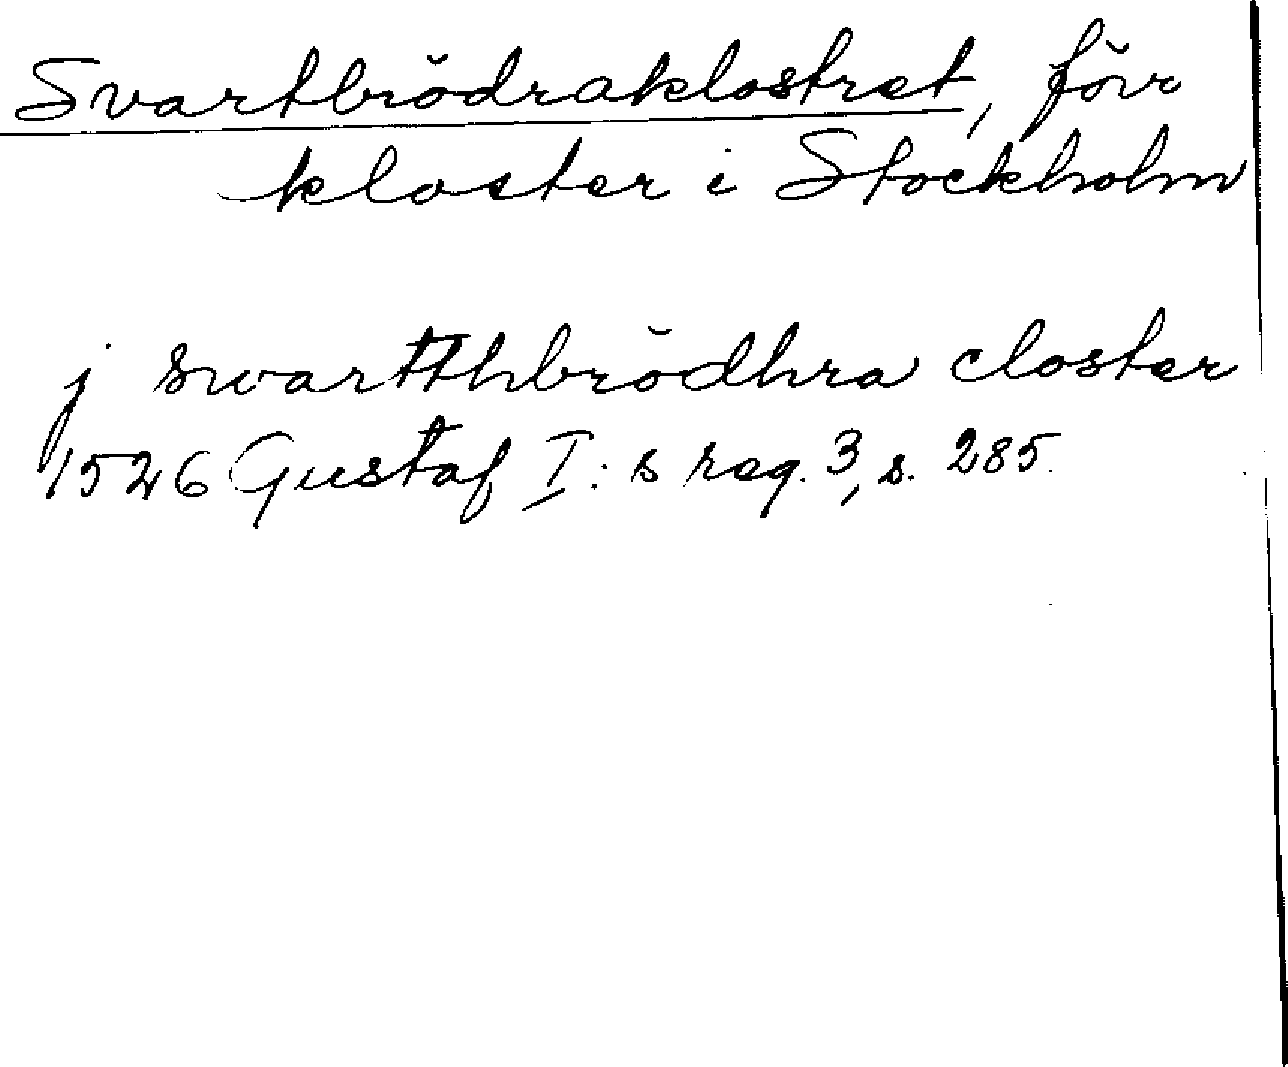 Svartbrödraklostret, förr
kloster i Stockholm
j swartthbrödhra closter
1526 Gustaf I:s reg. 3, s. 285.